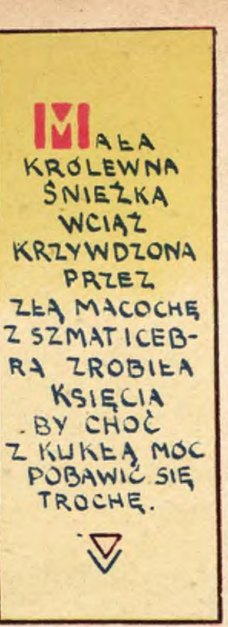 MAŁA
KRÓLEWNA
ŚNIEŻKA
WCIĄŻ
KRZYWDZONA
PRZEZ
ZŁĄ MACOCHĘ
Z SZMAT I CEB-
RA ZROBIŁA
KSIĘCIA
BY CHOĆ
Z KUKŁĄ MÓC
POBAWIĆ SIĘ
TROCHĘ.